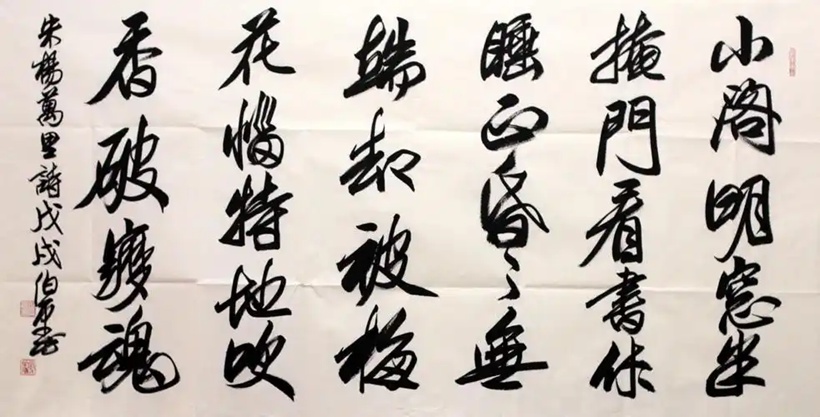 小閣明窓半
掩門看書作
睡正昏々無
端却被梅
花惱特地吹
香破夢魂
宋楊萬里詩戊戌伯